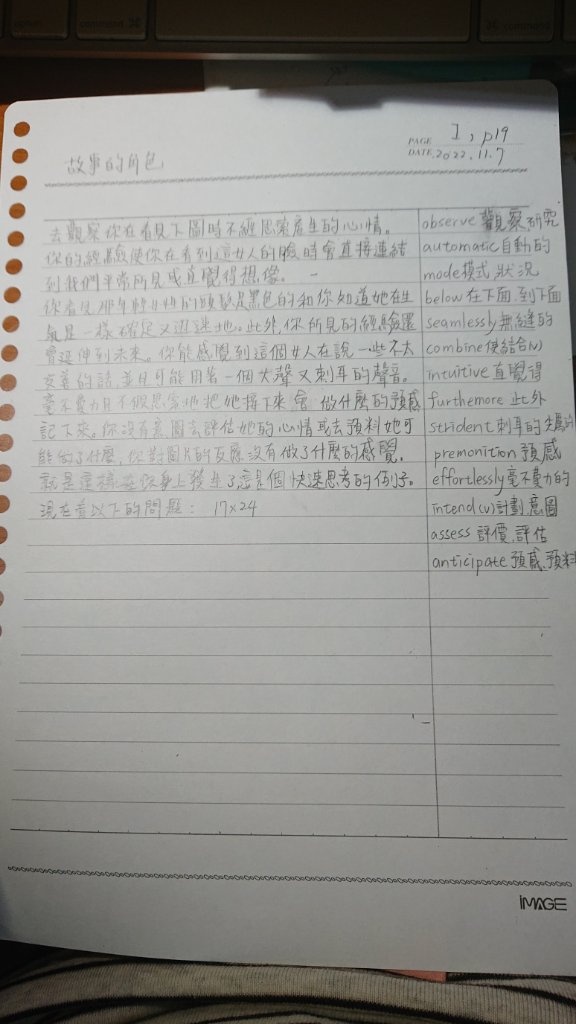 option
command ⌘
⌘ command
option
PAGE I, p19
DATE 2022.11.7
故事的角色
去觀察你在看見下圖時不經思索產生的心情。
你的經驗使你在看到這女人的臉時會直接連結
到我們平常所見或直覺得想像。
你看見那年輕女性的頭髮是黑色的和你知道她在生
氣是一樣確定又迅速地。此外,你所見的經驗還
會延伸到未來。你能感覺到這個女人在說一些不太
友善的話,並且可能用著一個大聲又刺耳的聲音。
毫不費力且不假思索地把她接下來會做什麼的預感
記下來。你沒有意圖去評估她的心情或去預料她可
能做了什麼,你對圖片的反應沒有做了什麼的感覺,
就是這樣發生了這是個快速思考的例子。
現在看以下的問題: 17×24
observe 觀察研究
automatic 自動的
mode 模式,狀況
below 在下面,到下面
seamlessly 無縫的
combine 使結合(N)
intuitive 直覺得
furthemore 此外
strident 刺耳的
premonition 預感
effortlessly 毫不費力的
intend(v) 計劃,意圖
assess 評價,評估
anticipate 預感,預料
iMAGE